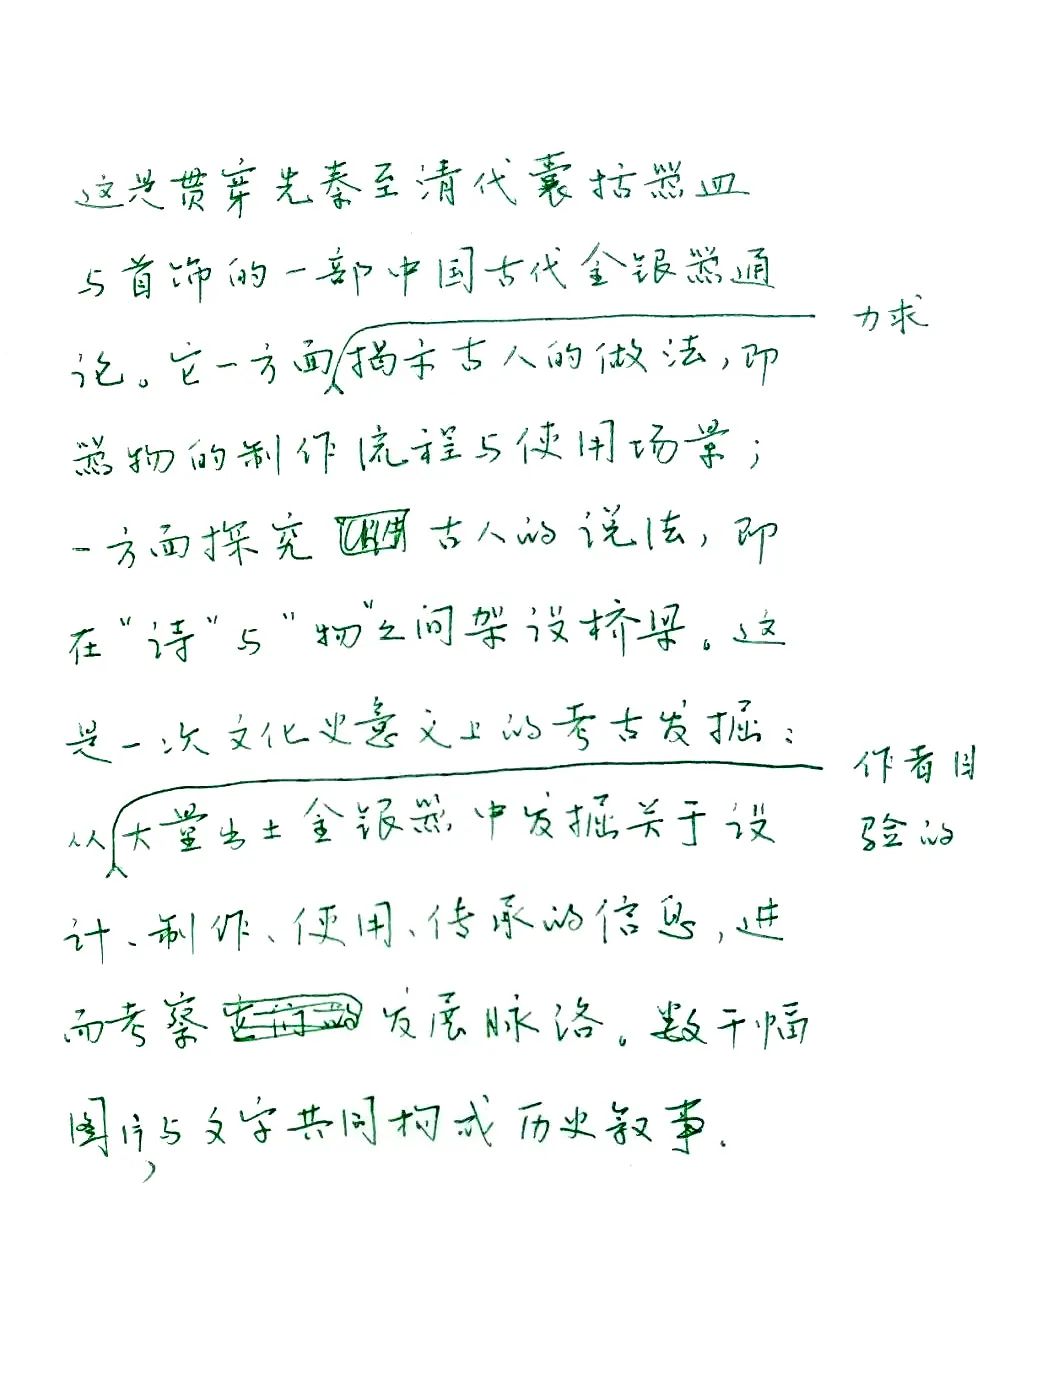 这是贯穿先秦至清代囊括器皿
与首饰的一部中国古代金银器通
力求
论。它一方面揭示古人的做法，即
器物的制作流程与使用场景；
一方面探究古人的说法，即
在“诗”与“物”之间架设桥梁。这
是一次文化史意义上的考古发掘：
作者目
从大量出土金银器中发掘关于设
验的
计、制作、使用、传承的信息，进
而考察发展脉络。数千幅
图片，与文字共同构成历史叙事.